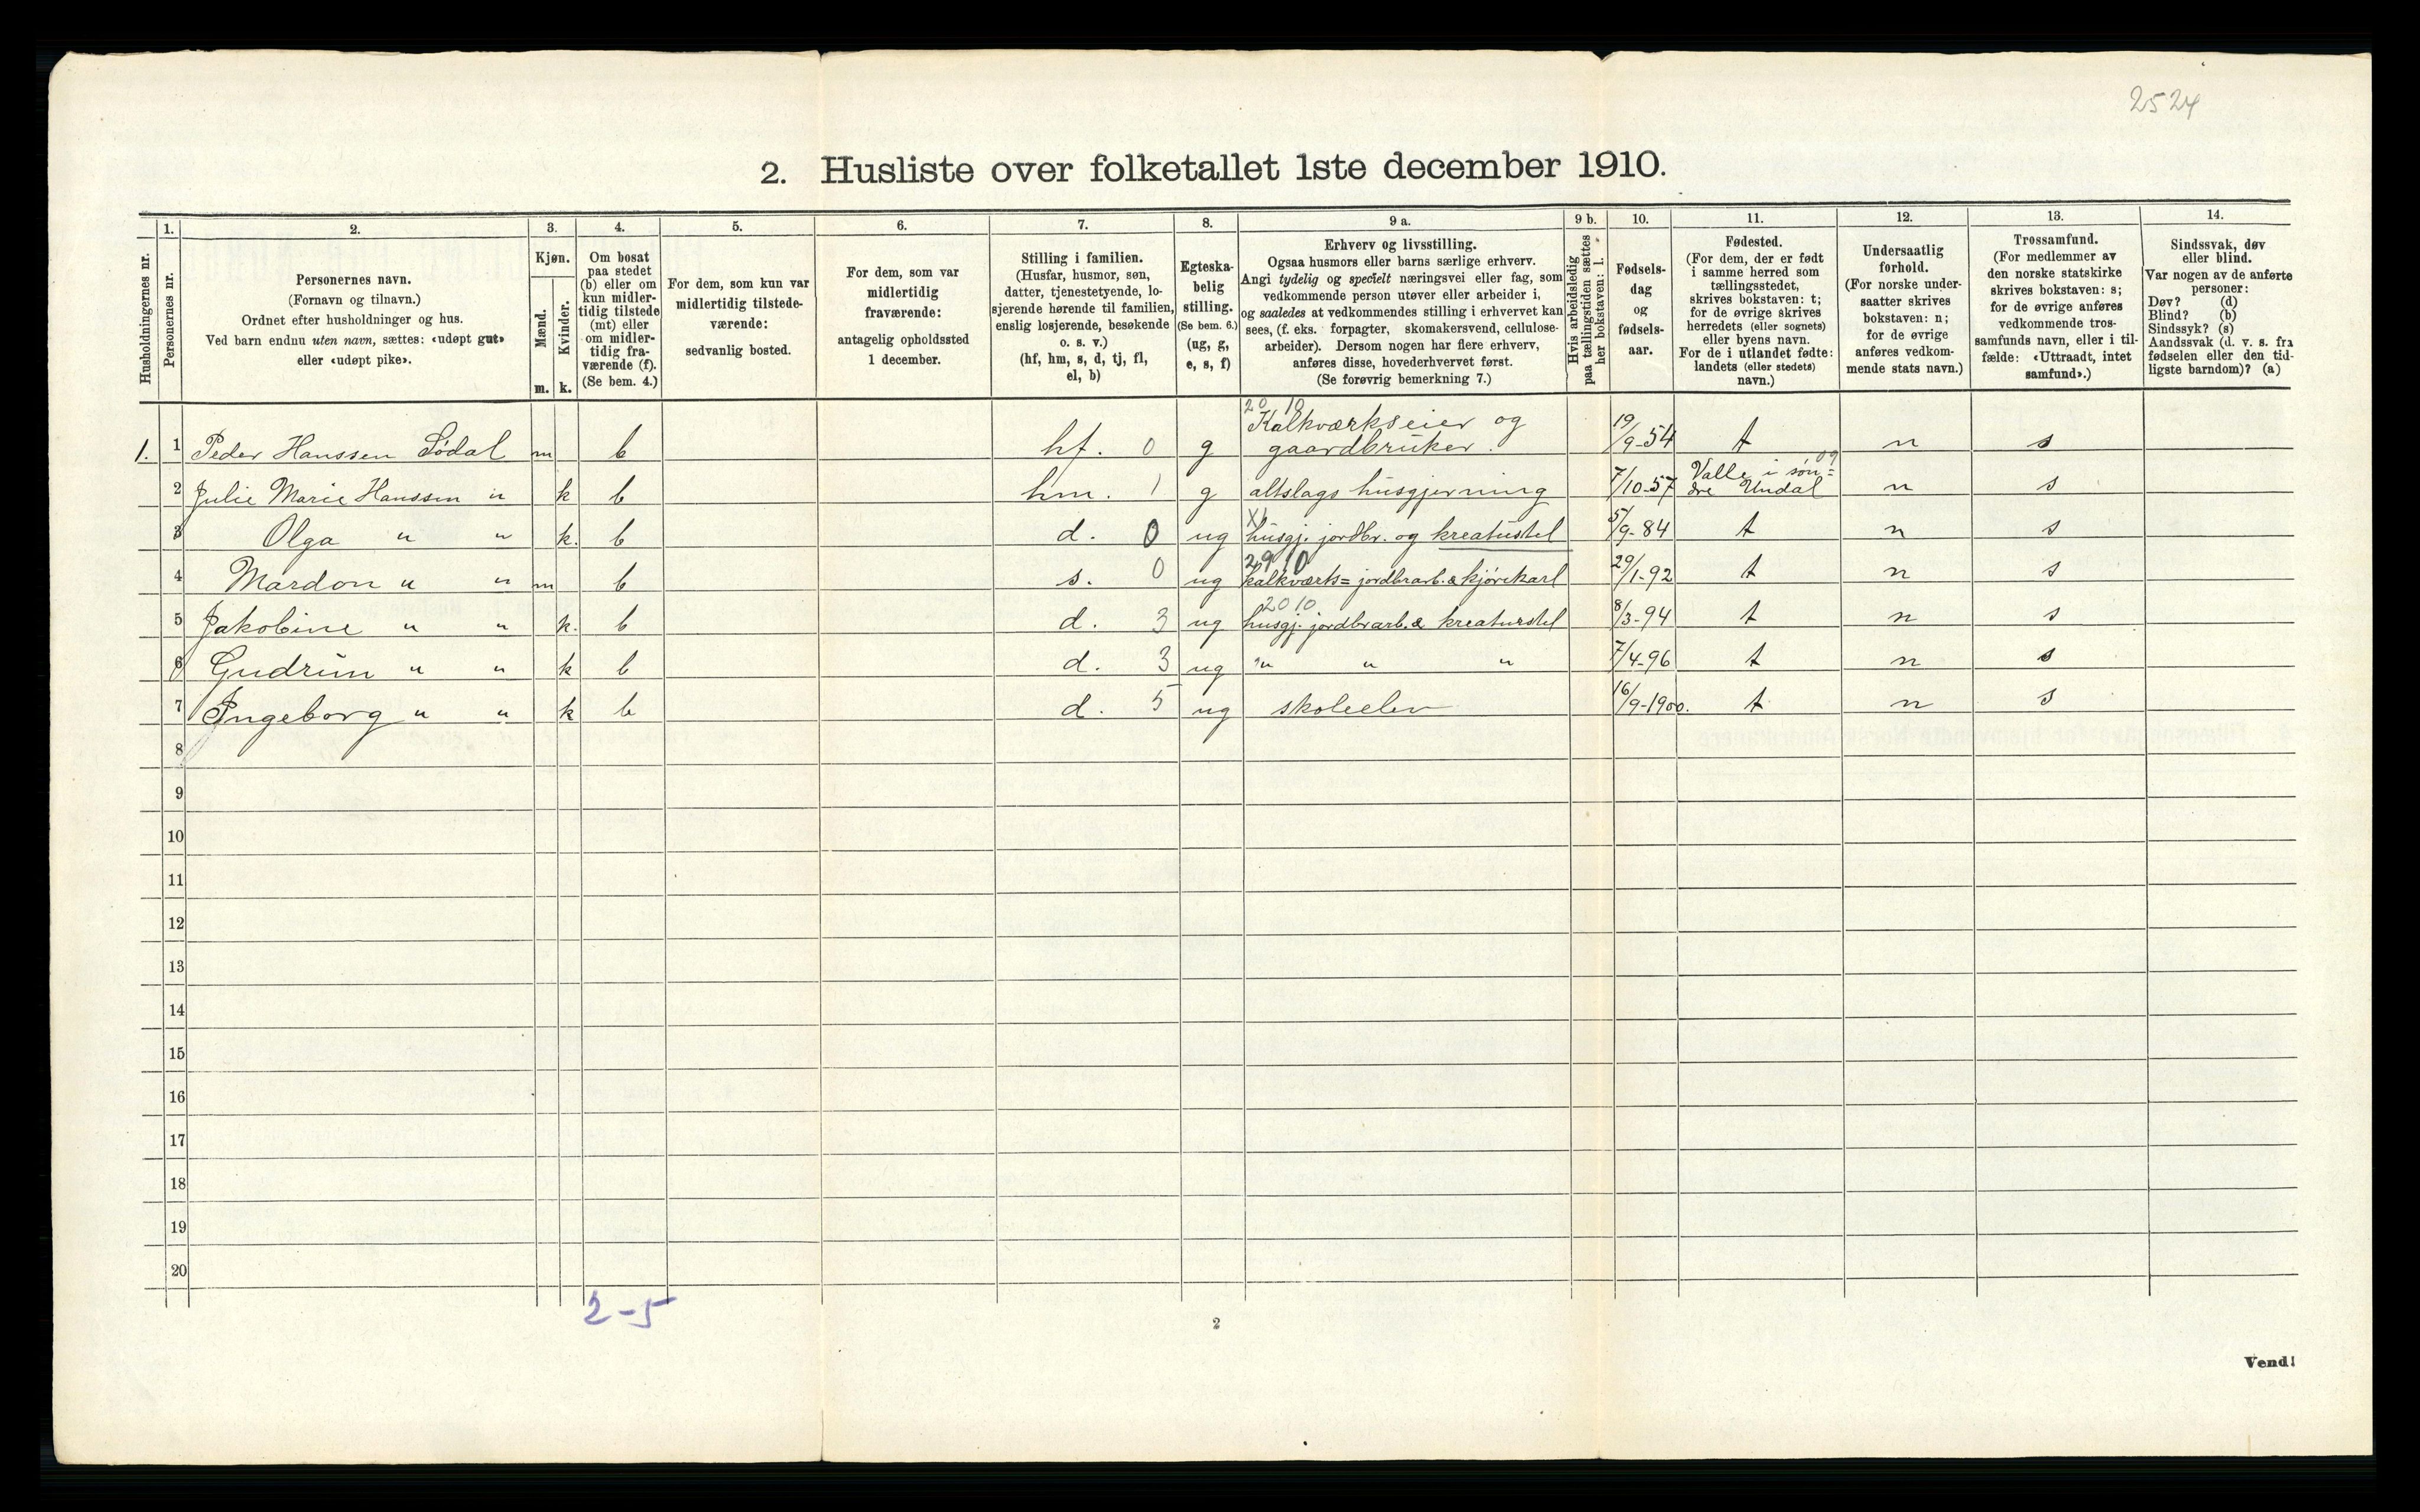 2524
2. Husliste over folketallet 1ste december 1910.
Husholdningernes nr.
1.
Personernes nr.
2.
Personernes navn.
(Fornavn og tilnavn.)
Ordnet efter husholdninger og hus.
Ved barn endnu uten navn, sættes: «udøpt gut»
eller «udøpt pike».
3.
Kjøn.
Mænd.
Kvinder.
m. k.
4.
Om bosat
paa stedet
(b) eller om
kun midler-
tidig tilstede
(mt) eller
om midler-
tidig fra-
værende (f).
(Se bem. 4.)
5.
For dem, som kun var
midlertidig tilstede-
værende:
sedvanlig bosted.
6.
For dem, som var
midlertidig
fraværende:
antagelig opholdssted
1 december.
7.
Stilling i familien.
(Husfar, husmor, søn,
datter, tjenestetyende, lo-
sjerende hørende til familien,
enslig losjerende, besøkende
o. s. v.)
(hf, hm, s, d, tj, fl,
el, b)
8.
Egteska-
belig
stilling.
(Se bem. 6.)
(ug, g,
e, s, f)
9 a.
Erhverv og livsstilling.
Ogsaa husmors eller barns særlige erhverv.
Angi tydelig og specielt næringsvei eller fag, som
vedkommende person utøver eller arbeider i,
og saaledes at vedkommendes stilling i erhvervet kan
sees, (f. eks. forpagter, skomakersvend, cellulose-
arbeider). Dersom nogen har flere erhverv,
anføres disse, hovederhvervet først.
(Se forøvrig bemerkning 7.)
9 b.
Hvis arbeidsledig
paa tællingstiden sættes
her bokstaven: l.
10.
Fødsels-
dag
og
fødsels-
aar.
11.
Fødested.
(For dem, der er født
i samme herred som
tællingsstedet,
skrives bokstaven: t;
for de øvrige skrives
herredets (eller sognets)
eller byens navn.
For de i utlandet fødte:
landets (eller stedets)
navn.)
12.
Undersaatlig
forhold.
(For norske under-
saatter skrives
bokstaven: n;
for de øvrige
anføres vedkom-
mende stats navn.)
13.
Trossamfund.
(For medlemmer av
den norske statskirke
skrives bokstaven: s;
for de øvrige anføres
vedkommende tros-
samfunds navn, eller i til-
fælde: «Uttraadt, intet
samfund».)
14.
Sindssvak, døv
eller blind.
Var nogen av de anførte
personer:
Døv? (d)
Blind? (b)
Sindssyk? (s)
Aandssvak (d. v. s. fra
fødselen eller den tid-
ligste barndom)? (a)
20 10
Kalkværkseier og
1. 1 Peder Hanssen Lødal m b hf. 0 g gaardbruker. 19/9-54 t n s
Valle i søn= 09
2 Julie Marie Hanssen " k b hm. 1 g altslags husgjerning 7/10-57 dre Undal n s
X6
3 Olga " " k. b d. 0 ug husgj. jordbr. og kreaturstel 5/9-84 t n s
29 10
4 Mardon " " m b s. 0 ug kalkværks= jordbrarb. & kjørekarl 29/1-92 t n s
20 10
5 Jakobine " " k. b d. 3 ug husgj. jordbrarb. & kreaturstel 8/3-94 t n s
6 Gudrun " " k b d. 3 ug " " " 7/4-96 t n s
7 Ingeborg " " k b d. 5 ug skoleelev 16/9-1900. t n s
8
9
10
11
12
13
14
15
16
17
18
19
20
2-5
2
Vend!